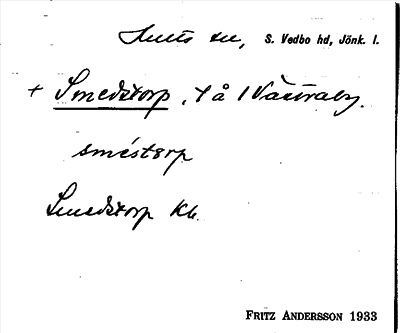 Hults sn, S. Vedbo hd, Jönk. l.
+ Smedstorp, t å /Västraby.
sméstɷrp
Smedstorp Kb.
FRITZ ANDERSSON 1933